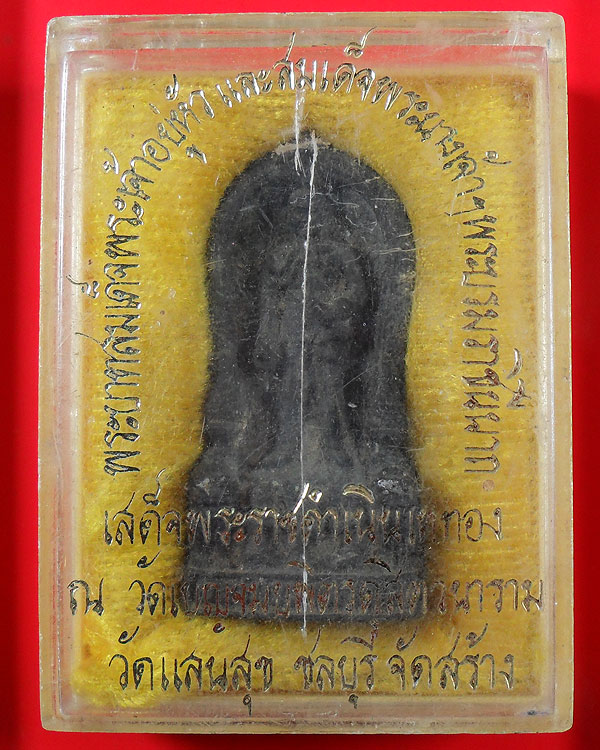 พระบาทสมเด็จพระเจ้าอยู่หัว และสมเด็จพระนางเจ้าฯพระบรมราชินีนาถ
เสด็จพระราชดำเนินเททอง
ณ วัดเบญจมบพิตรดุสิตวนาราม
วัดแสนสุข ชลบุรี จัดสร้าง